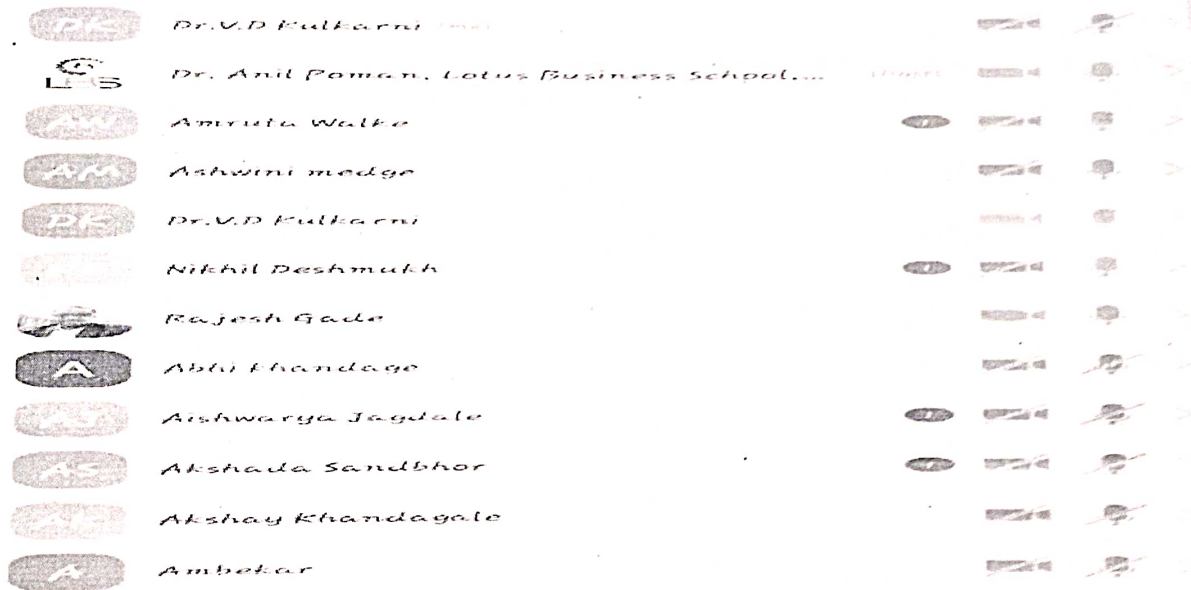 DK Dr.V.D Kulkarni (me)
LBS Dr. Anil Poman, Lotus Business School,... (Host)
AW Amruta Walke
AM Ashwini medge
DK Dr.V.D Kulkarni
Nikhil Deshmukh
Rajesh Gade
A Abhi Khandage
AJ Aishwarya Jagdale
AS Akshada Sandbhor
AK Akshay Khandagale
A Ambekar